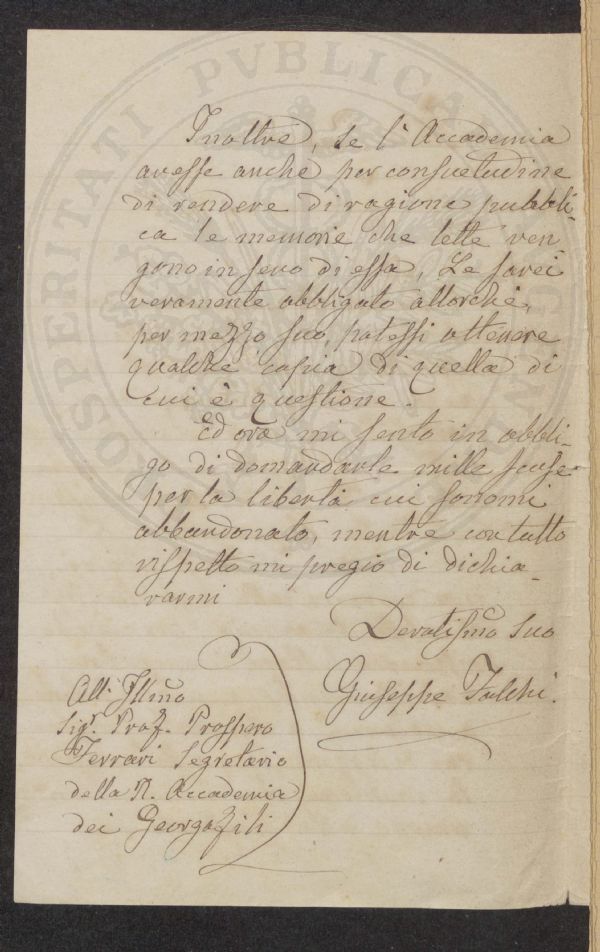 Inoltre, se l'Accademia
avesse anche per consuetudine
di rendere di ragione pubbli-
ca le memorie che lette ven-
gono in seno di essa, Le sarei
veramente obbligato allorchè,
per mezzo suo, potessi ottenere
qualche copia di quella di
cui è questione.
Ed ora mi sento in obbli-
go di domandarle mille scuse
per la libertà cui sonomi
abbandonato, mentre con tutto
rispetto mi pregio di dichia-
rarmi
Devotissmo Suo
Giuseppe
All' Illmo
Sigr. Prof. Prospero
Ferrari Segretario
della R. Accademia
dei Georgofili
PROSPERITATI PVBLICAE